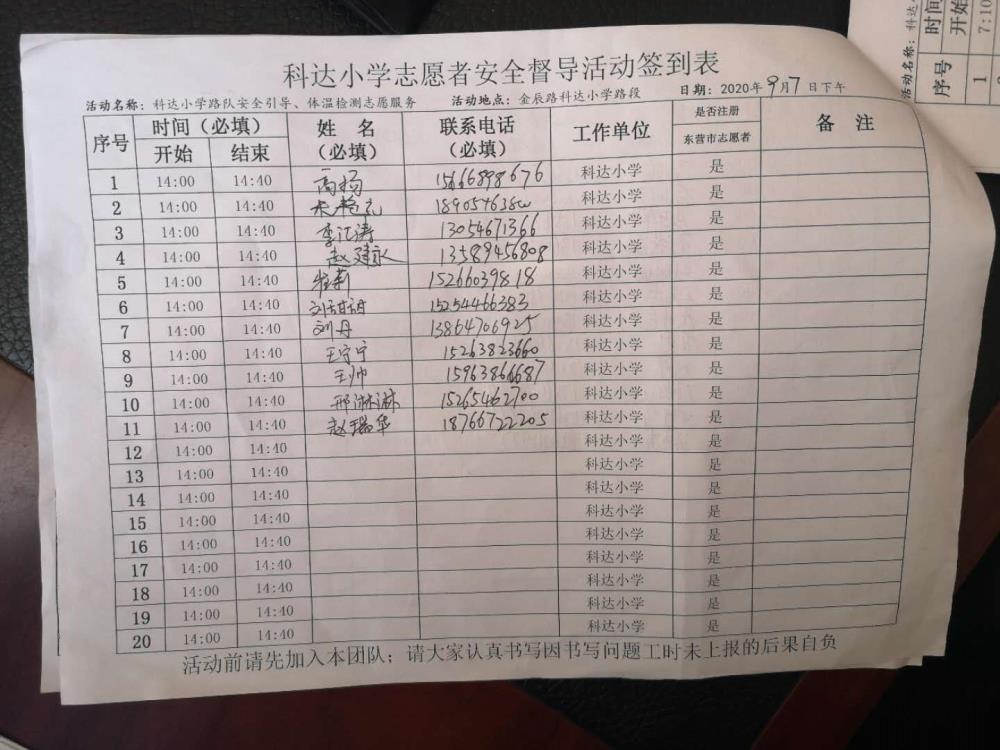 科达小学志愿者安全督导活动签到表
活动名称：科达小学路队安全引导、体温检测志愿服务 活动地点：金辰路科达小学路段 日期：2020年9月7日下午
序号 时间（必填） 姓 名（必填） 联系电话（必填） 工作单位 是否注册 备 注
开始 结束 东营市志愿者
1 14:00 14:40 高杨 15666898676 科达小学 是
2 14:00 14:40 科达小学 是
3 14:00 14:40 李汇涛 13054671366 科达小学 是
4 14:00 14:40 赵建永 13589456808 科达小学 是
5 14:00 14:40 崔莉 15266039818 科达小学 是
6 14:00 14:40 刘甜甜 15254466383 科达小学 是
7 14:00 14:40 刘丹 13864706925 科达小学 是
8 14:00 14:40 王守宁 15263823660 科达小学 是
9 14:00 14:40 王帅 15963866687 科达小学 是
10 14:00 14:40 邢淋淋 15265462700 科达小学 是
11 14:00 14:40 赵瑞华 18766722205 科达小学 是
12 14:00 14:40 科达小学 是
13 14:00 14:40 科达小学 是
14 14:00 14:40 科达小学 是
15 14:00 14:40 科达小学 是
16 14:00 14:40 科达小学 是
17 14:00 14:40 科达小学 是
18 14:00 14:40 科达小学 是
19 14:00 14:40 科达小学 是
20 14:00 14:40 科达小学 是
活动前请先加入本团队；请大家认真书写因书写问题工时未上报的后果自负
活动名称：科达
序号 时间
开始
1 7:10